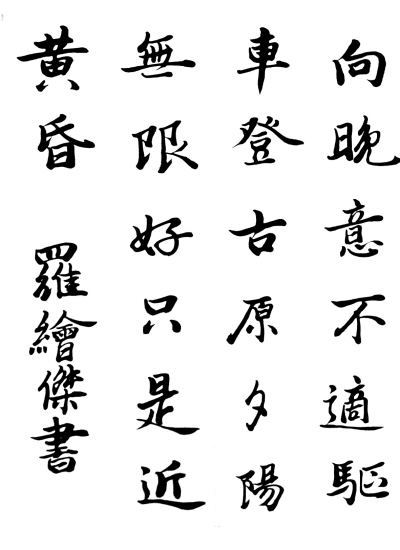 向晚意不適驅
車登古原夕陽
無限好只是近
黃昏
羅繪傑書